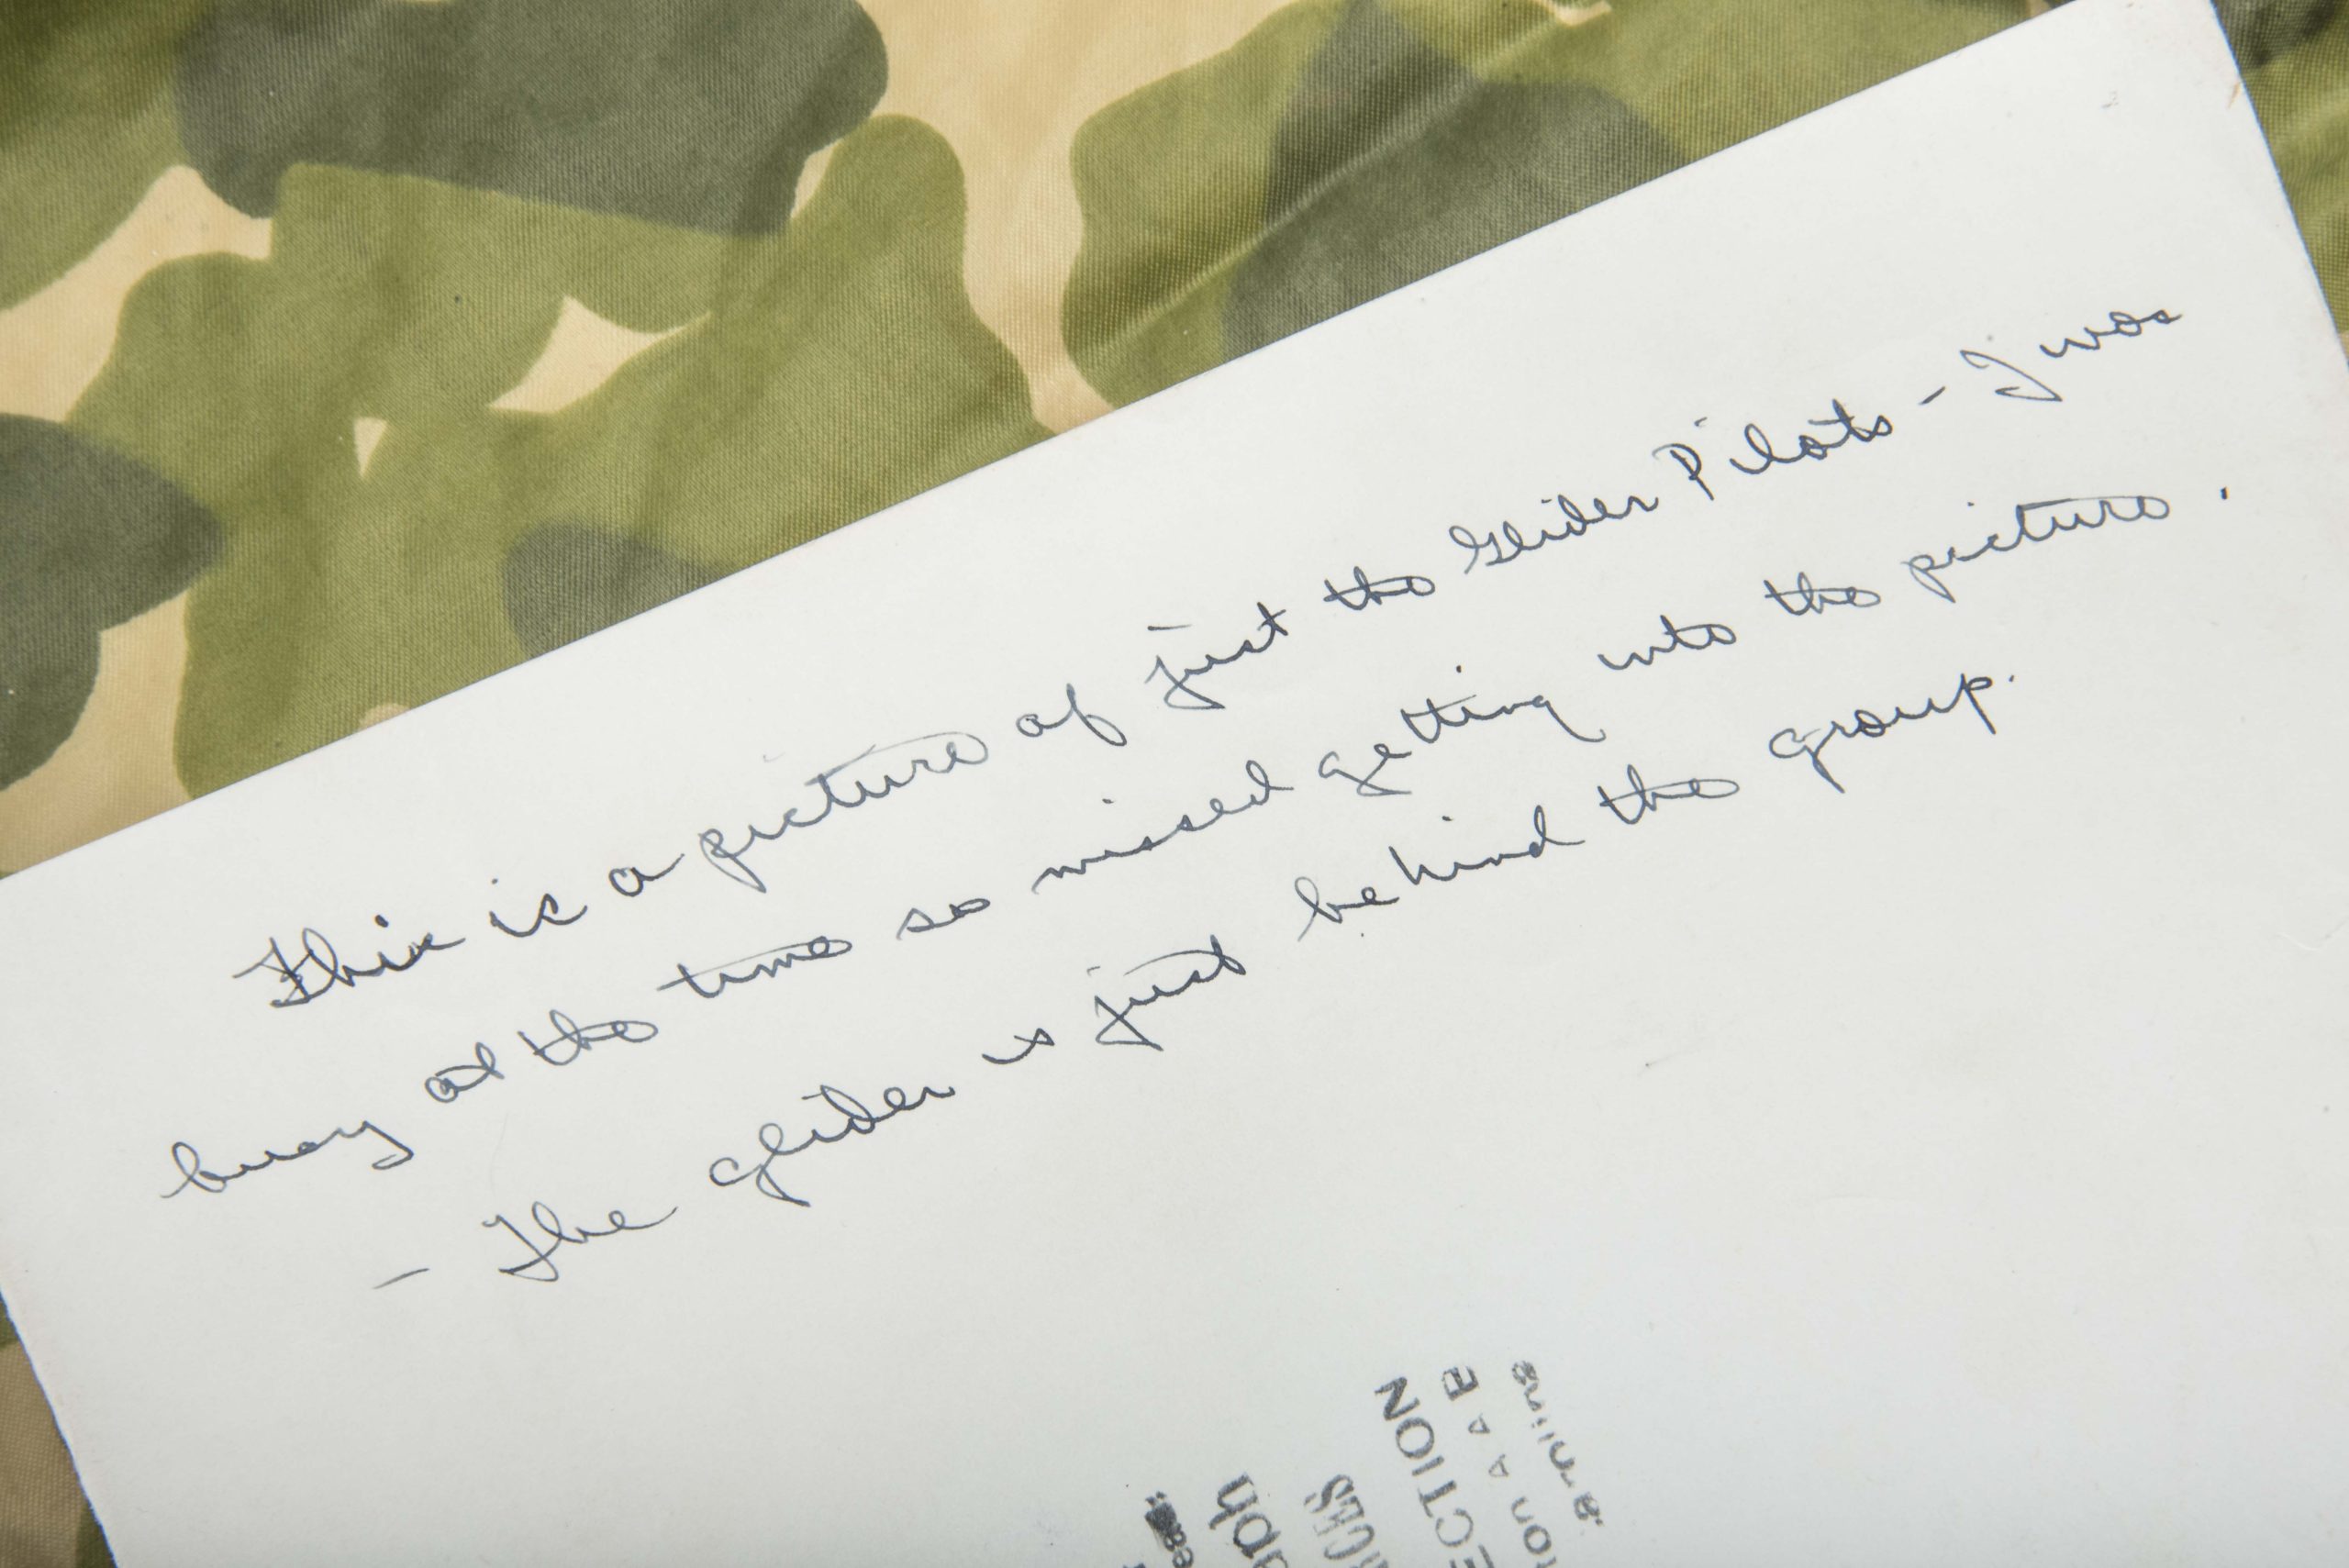 This is a picture of just the Glider Pilots - I was
busy at the time so missed getting into the picture.
- The glider is just behind the group.
aph
ECTION